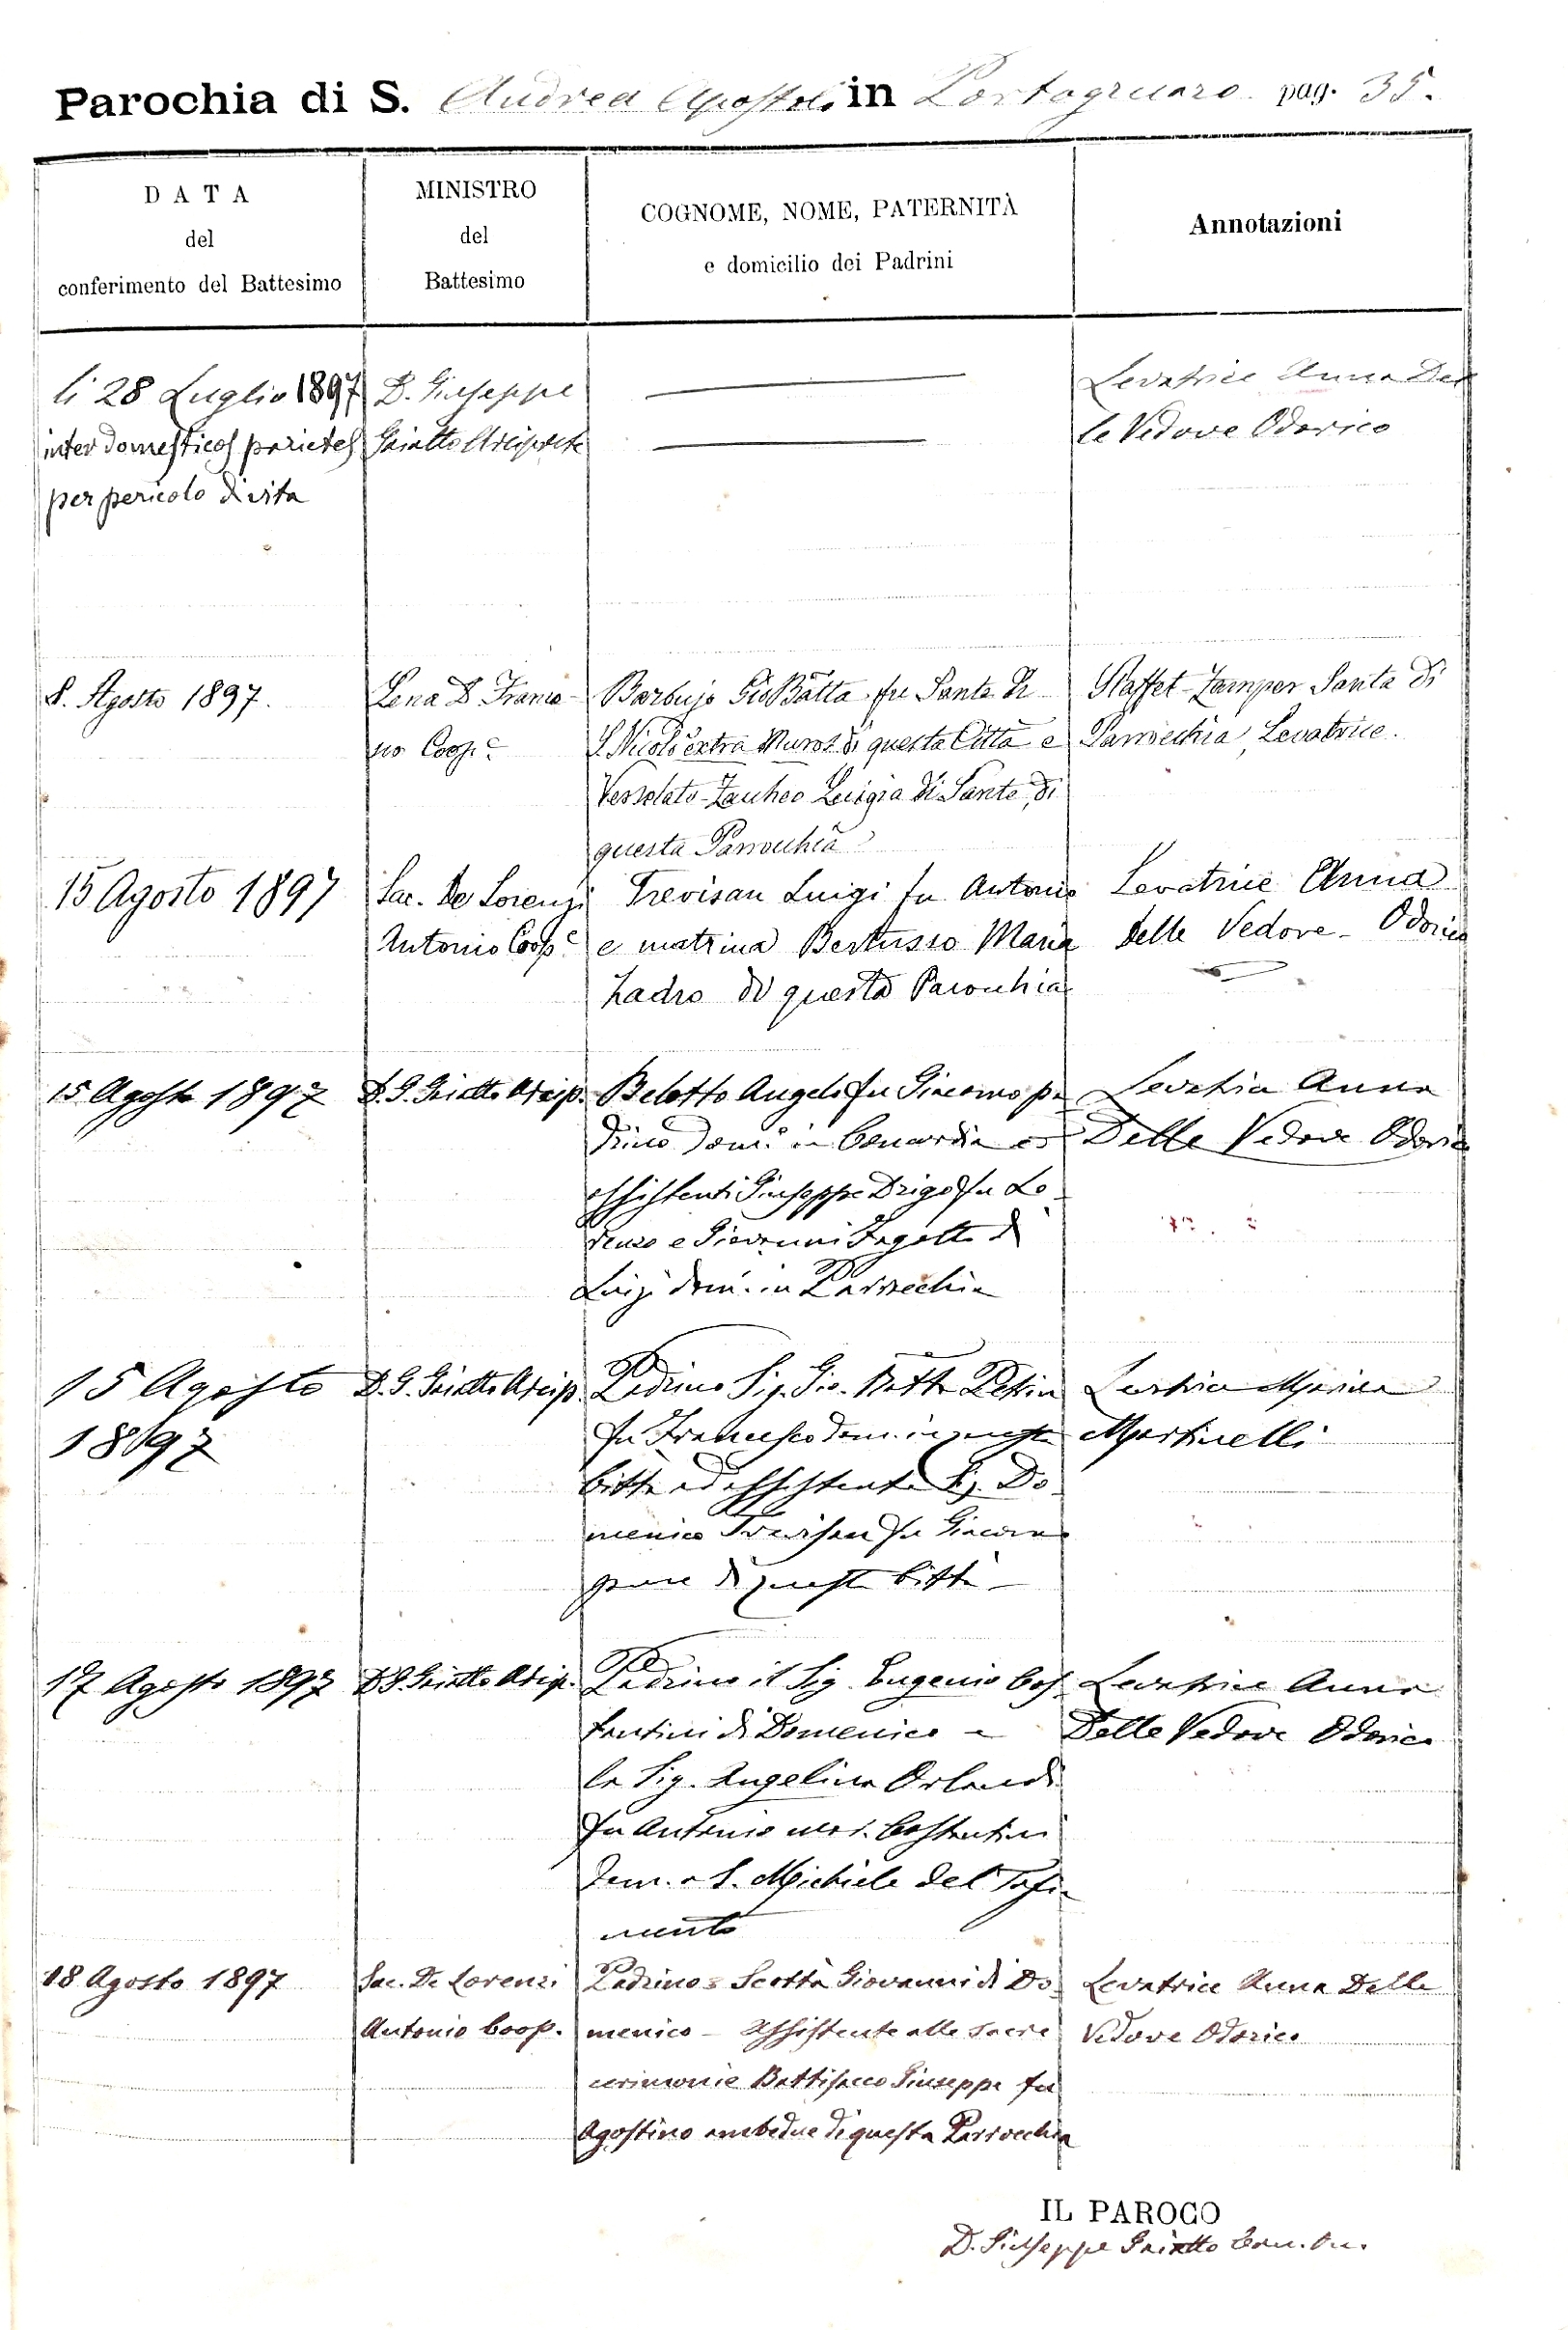 Parochia di S. Andrea Apostolo in Portogruaro pag. 35.
DATA
del
conferimento del Battesimo
MINISTRO
del
Battesimo
COGNOME, NOME, PATERNITÀ
e domicilio dei Padrini
Annotazioni
li 28 Luglio 1897
inter domesticos parietes
per pericolo di vita
D. Giuseppe
Arciprete
Levatrice Anna Del
le Vedove Odorico
8. Agosto 1897.
Lena D. France
Coop.e
Barbujo Gio Batta fu Sante di
S. Nicolò extra Muros di questa Città e
Luigia di Sante, di
questa Parrocchia
Staffet-Zamper Santa di
Parrocchia, Levatrice.
15 Agosto 1897
Sac. De Lorenzi
Antonio Coop.e
Trevisan Luigi fu Antonio
e matrina Bertusso Maria
Zadro di questa Parochia
Levatrice Anna
delle Vedove - Odorico
15 Agosto 1897
D. G. Arcip.
Belotto Angelo fu Giacomo pa
drino dom. in Concordia ed
assistenti Giuseppe Drigo fu Lo
renzo e Giovanni di
Luigi dom. in Parrocchia
Levatrice Anna
Delle Vedove Odorico
15 Agosto
1897
D. G. Arcip.
Padrino Sig. Gio. Batta
fu Francesco dom. in questa
Città ed assistente Sig. Do
menico Trevisan fu Giacomo
pure di questa Città
Levatrice Marina
Martinelli
17 Agosto 1897
D. G. Arcip.
Padrino il Sig. Eugenio Cos
tantini di Domenico e
la Sig. Angelina Orlandi
fu Antonio mar. Costantini
dom. a S. Michiele del Taglia
mento
Levatrice Anna
Delle Vedove Odorico
18 Agosto 1897
Sac. De Lorenzi
Antonio Coop.
Padrino = Scotta Giovanni di Do
menico - Assistente alle sacre
cerimonie Battisacco Giuseppe fu
Agostino ambedue di questa Parrocchia
Levatrice Anna Delle
Vedove Odorico
IL PAROCO
D. Giuseppe